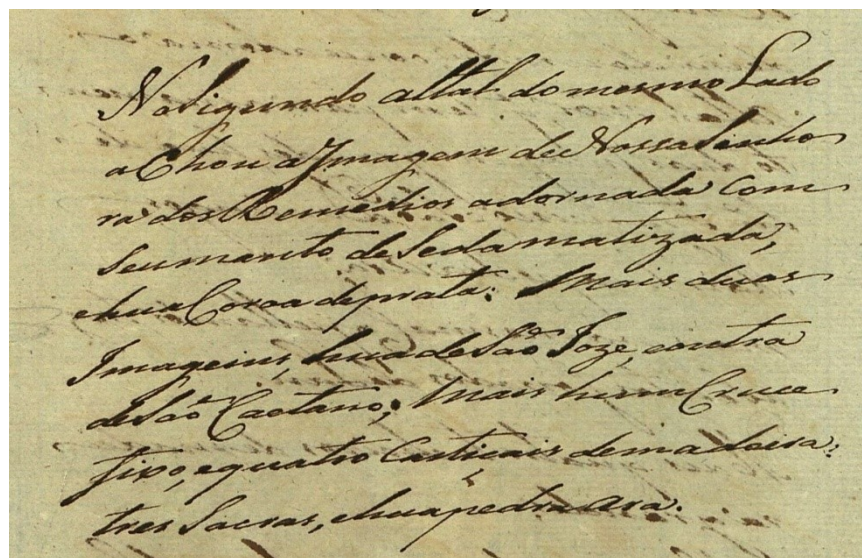 No Sigundo altal do mesmo Lado
achou a Ymagem de Nossa Senho
ra dos Remedios adornada com
Seu manto de Seda matizada,
e hua Coroa de prata: Mais duas
Imageins, hua de São Joze, e outra
de São Caetano; Mais hum Cruce
fixo, e quatro Castiçais de madeira:
tres Sacras, e hua pedra Ara.